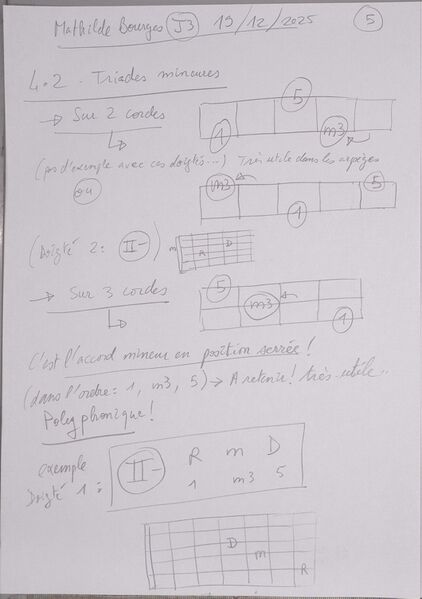 Mathilde Bourges J3 19/12/2025 5
4.2. Triades mineures
→ Sur 2 cordes
5
1 m3
(pas d'exemple avec ces doigtés...) Très utile dans les arpèges
ou
m3 5
1
(Doigté 2: II-)
m D
R
→ Sur 3 cordes
5
m3
1
C'est l'accord mineur en position serrée!
(dans l'ordre: 1, m3, 5) → A retenir! très utile..
Polyphonique!
exemple
Doigté 1:
II- R m D
1 m3 5
D
m
R